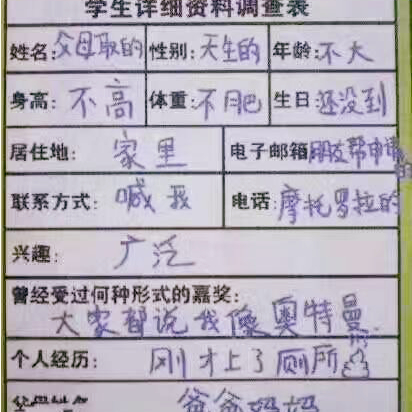 学生详细资料调查表
姓名:父母取的 性别:天生的 年龄:不大
身高:不高 体重:不肥 生日:还没到
居住地:家里 电子邮箱 朋友帮申请的
联系方式:喊我 电话:摩托罗拉的
兴趣:广泛
曾经受过何种形式的嘉奖:
大家都说我像奥特曼
个人经历:刚才上了厕所
爸爸妈妈